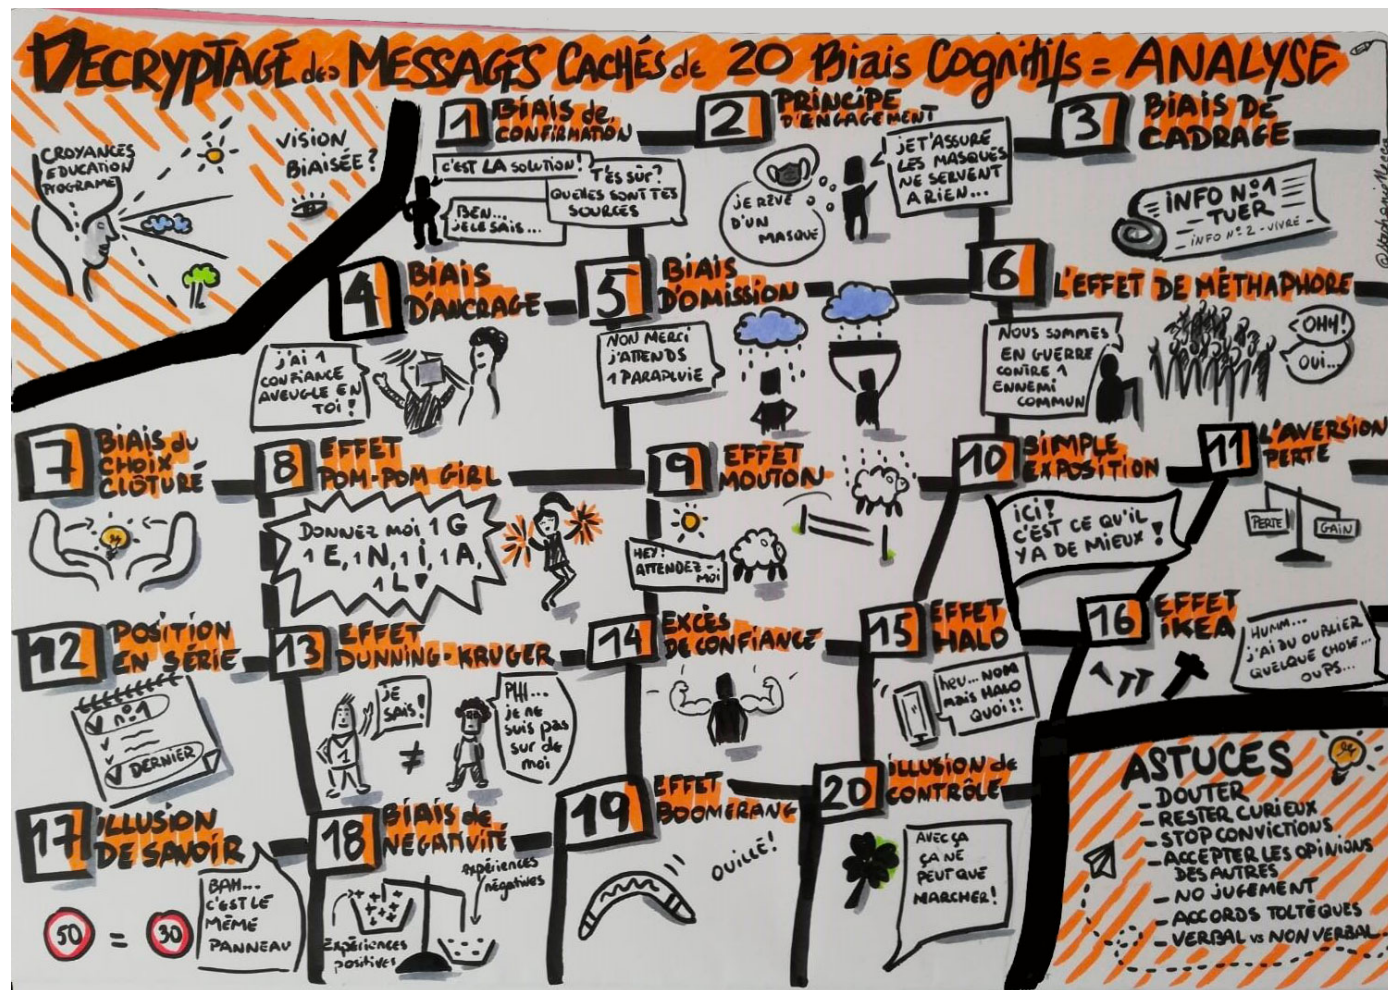 DECRYPTAGE des MESSAGES CACHÉS de 20 Biais Cognitifs = ANALYSE
CROYANCES
EDUCATION
PROGRAMME
VISION
BIAISÉE?
1
BIAIS de
CONFIRMATION
C'EST LA SOLUTION!
T'ES SÛR?
QUELLES SONT TES
SOURCES
BEN...
JE LE SAIS...
2
PRINCIPE
D'ENGAGEMENT
JE RÊVE
D'UN
MASQUE
JE T'ASSURE
LES MASQUES
NE SERVENT
A RIEN...
3
BIAIS DE
CADRAGE
INFO N°1
TUER
- INFO N°2 - VIVRE -
4
BIAIS
D'ANCRAGE
J'AI 1
CONFIANCE
AVEUGLE EN
TOI!
5
BIAIS
D'OMISSION
NON MERCI
J'ATTENDS
1 PARAPLUIE
6
L'EFFET DE MÉTHAPHORE
NOUS SOMMES
EN GUERRE
CONTRE 1
ENNEMI
COMMUN
OHH!
OUI...
7
BIAIS du
CHOIX
CLÔTURÉ
8
EFFET
POM-POM GIRL
DONNEZ MOI 1 G
1 E, 1 N, 1 I, 1 A,
1 L
9
EFFET
MOUTON
HEY!
ATTENDEZ-
MOI
10
SIMPLE
EXPOSITION
ICI!
C'EST CE QU'IL
Y A DE MIEUX!
11
L'AVERSION
PERTE
PERTE
GAIN
12
POSITION
EN SÉRIE
N°1
DERNIER
13
EFFET
DUNNING-KRUGER
JE
SAIS!
1
≠
PHI...
JE NE
SUIS PAS
SUR DE
MOI
14
EXCÈS
DE CONFIANCE
15
EFFET
HALO
HEU... NON
MAIS HALO
QUOI!!
16
EFFET
IKEA
HUMM...
J'AI DU OUBLIER
QUELQUE CHOSE...
OUPS...
17
ILLUSION
DE SAVOIR
BAH...
C'EST LE
MÊME
PANNEAU
50 = 30
18
BIAIS de
NÉGATIVITÉ
Expériences
négatives
Expériences
positives
19
EFFET
BOOMERANG
OUILLE!
20
ILLUSION de
CONTRÔLE
AVEC ÇA
ÇA NE
PEUT QUE
MARCHER!
ASTUCES
- DOUTER
- RESTER CURIEUX
- STOP CONVICTIONS
- ACCEPTER LES OPINIONS
DES AUTRES
- NO JUGEMENT
- ACCORDS TOLTÈQUES
- VERBAL vs NON VERBAL